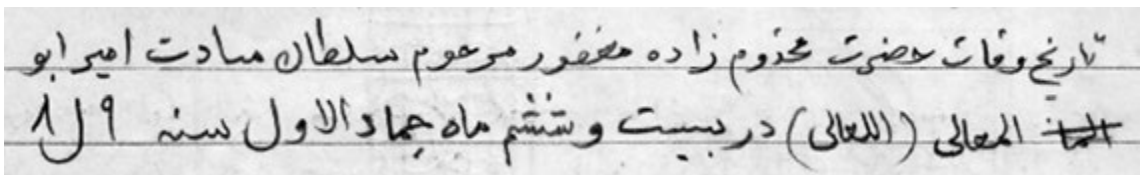 تاریخ وفات حضرت مخدوم زاده مغفور مرحوم سلطان سادت امیر ابو
المعالی (اللعالی) در بیست و ششم ماه جماد الاول سنه